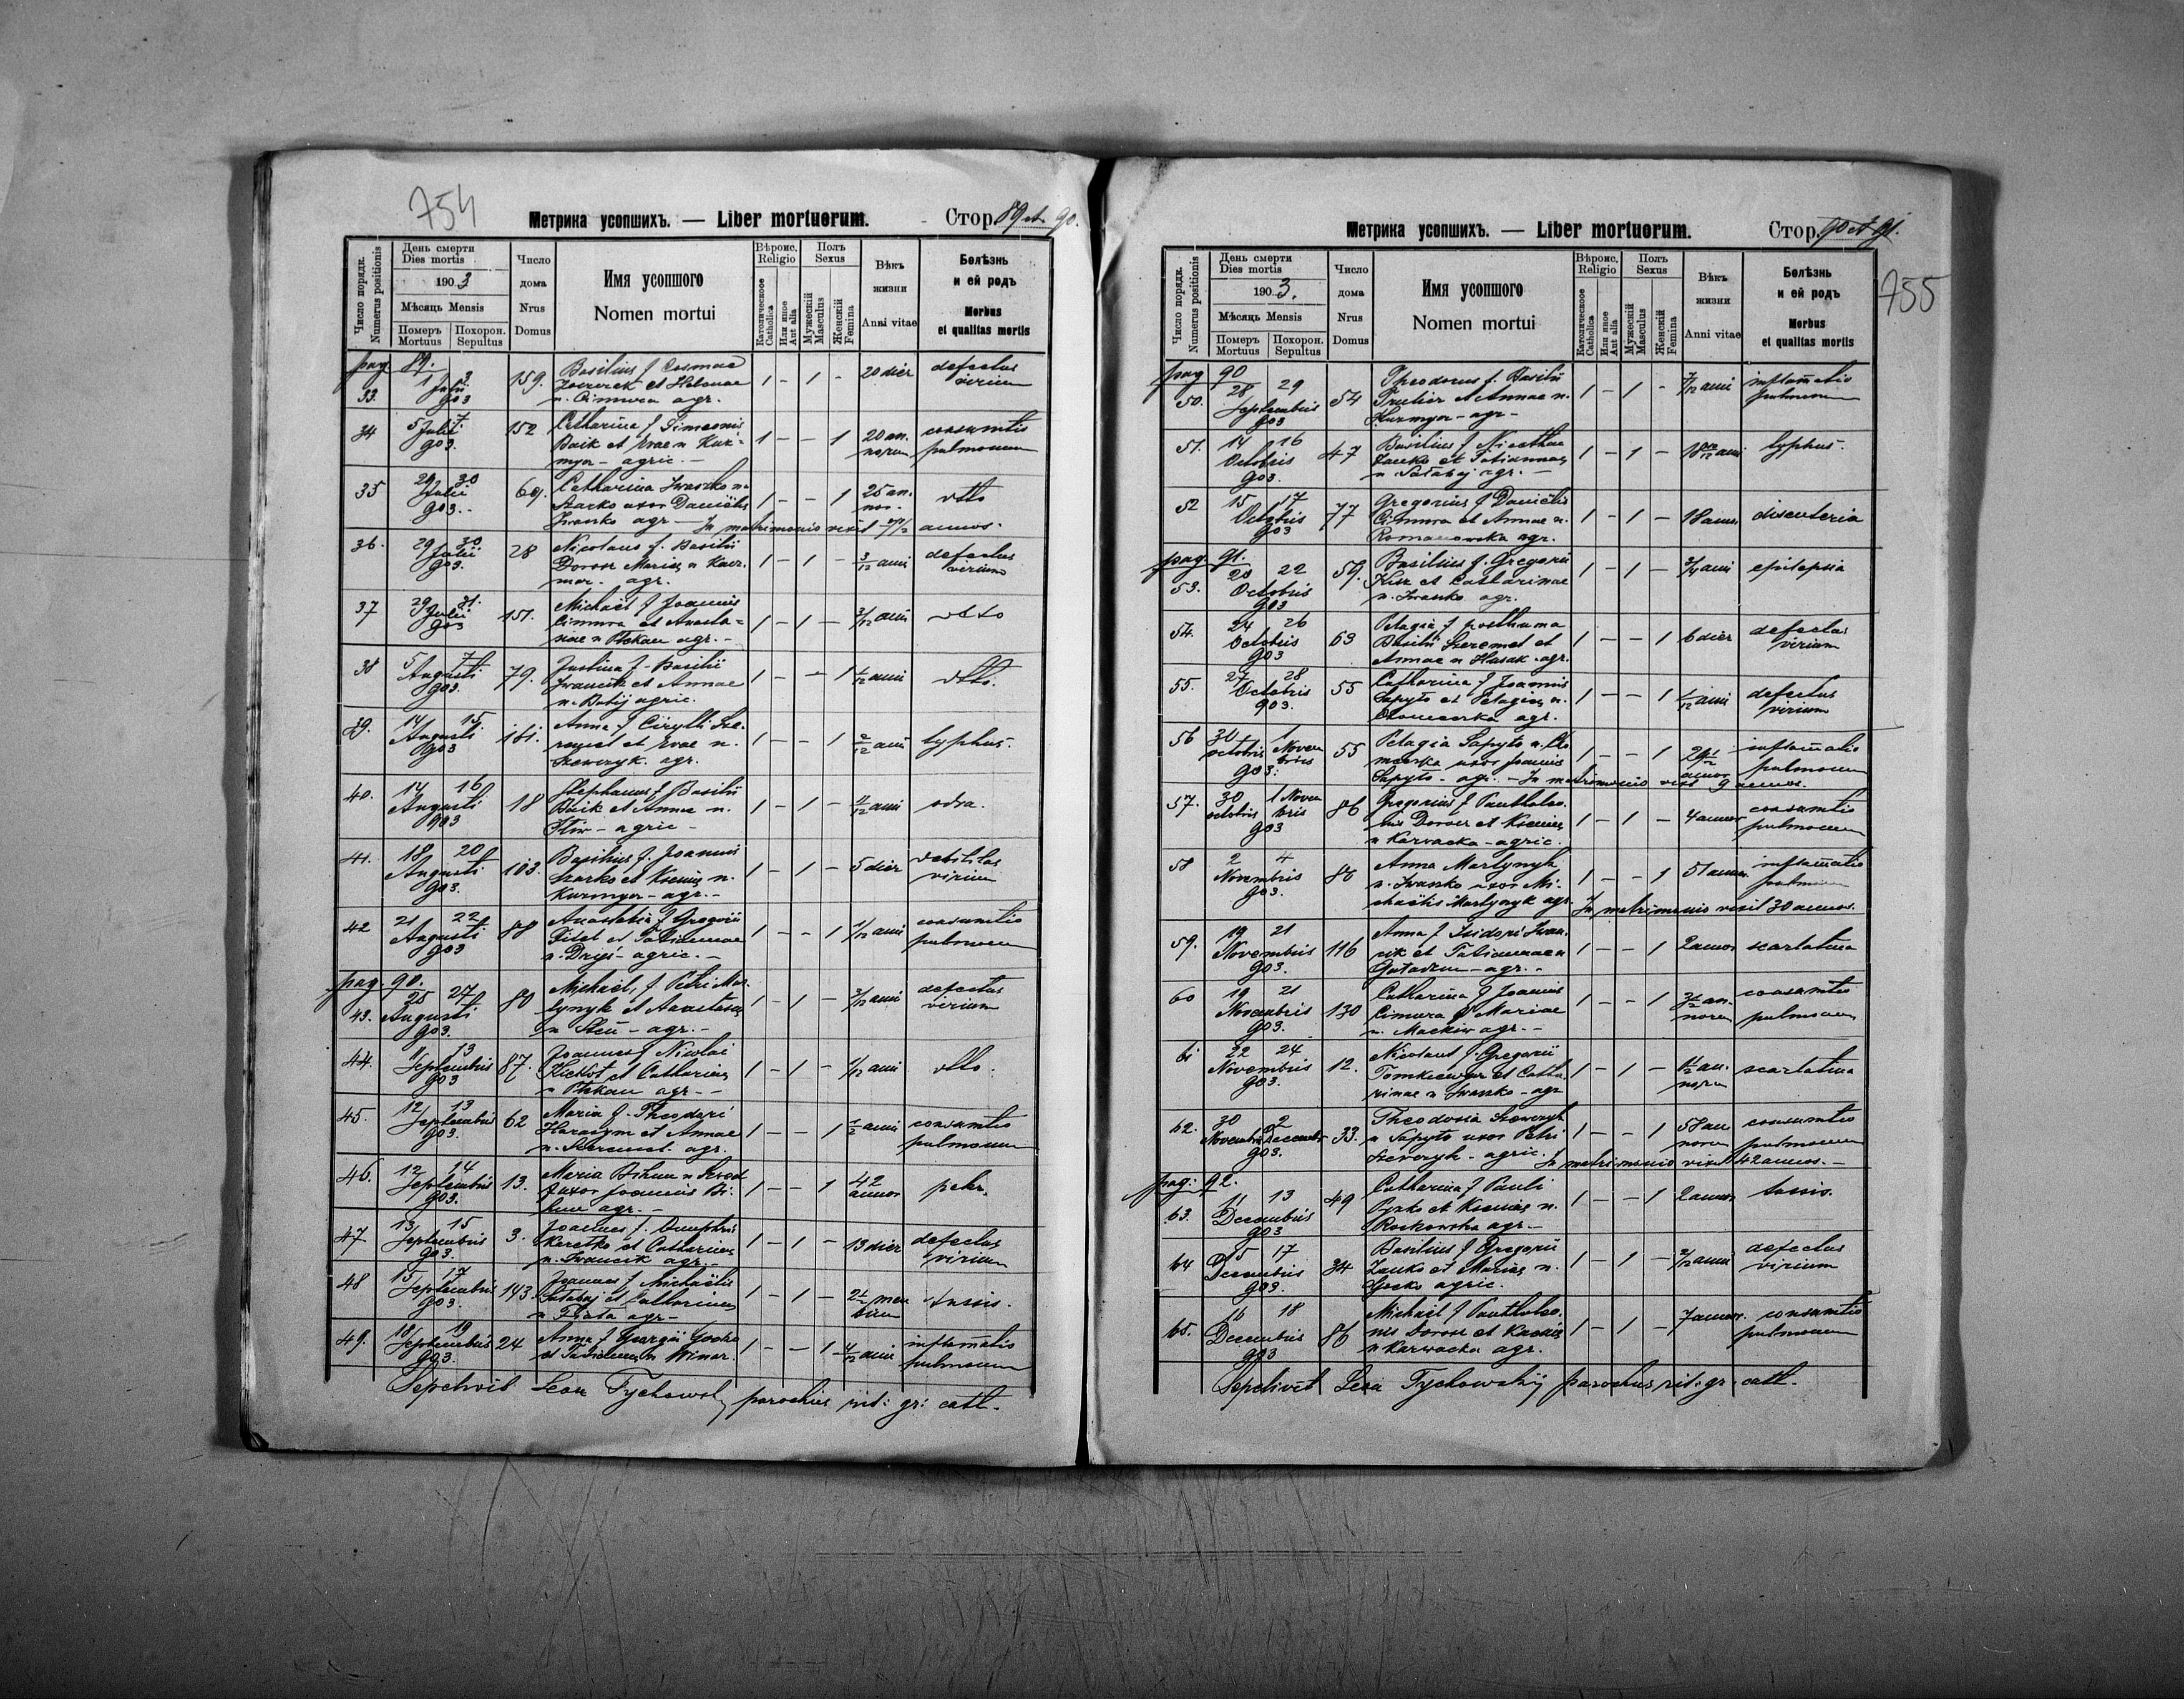 754
Метрика усопшихъ. — Liber mortuorum.
Стор. 89 et 90.
Число порядк.
Numerus positionis
День смерти
Dies mortis
1903
Мѣсяць Mensis
Померъ
Mortuus
Похорон.
Sepultus
Число
дома
Nrus
Domus
Имя усопшого
Nomen mortui
Вѣроис.
Religio
Католическое
Catholica
Или иное
Aut alia
Полъ
Sexus
Мужескій
Masculus
Женскій
Femina
Вѣкъ
жизни
Anni vitae
Болѣзнь
и ей родъ
Morbus
et qualitas mortis
pag. 89.
33. 1 3 Julii 903 159. Basilius f Cosmae et Helenae n. Cimura agr. 1 - 1 - 20 dier defectus virium
34 5 7. Julii 903. 152 Catharina f Simeonis Baik et Evae n Kurmyn - agric. - 1 - - 1 20 annorum consumtio pulmonum
35 29 30 Julii 903. 69. Catharina Iwaszko n. Szarko uxor Daniëlis Iwaszko agr - In matrimonio vixit annos. 1 - - 1 25 annor. dtto
36. 29 30 Julii 903. 28 Nicolaus f. Basilii Dorosz Mariae n agr. 1 - 1 - 3/12 anni defectus virium
37 29 31. Julii 903 151. Michaël f Joannis Cimura et Anastasiae n Ptskan agr. - 1 - 1 - 3/12 anni dtto
38 5 7 Augusti 903. 79. Justina f - Basilii Iwancik et Annae n. Batij agric. 1 - - 1 1/12 anni dtto.
39. 14 15. Augusti 903 161. Anna f Cirylli Szeremet et Evae n. Szewczyk. agr. 1 - - 1 2/12 anni typhus.
40. 14 16 Augusti 903 18 Stephanus f Basilii Baik et Annae n. Iliw - agric - 1 - 1 - 11/12 anni odra.
41. 18 20 Augusti 903. 103. Basilius f. Joannis Szarko et Kseniae n. Kurmyn - agr. - 1 - 1 - 5 dier debilitas virium
42 21 22 Augusti 903 88 Anastasia f Gregorii Fitel et Tatiannae n. Dryś - agric. - 1 - - 1 1/12 anni consumtio pulmonum
pag. 90.
43. 25 27 Augusti 903. 80 Michaël f Petri Martynyk et Anastasiae n Steń - agr. - 1 - 1 - 3/12 anni defectus virium
44. 11 13 Septembris 903 87. Joannes f Nicolai et Catharinae n Ptskan agr. - 1 - 1 - 1/12 anni dtto.
45. 12 13 Septembris 903. 62 Maria f. Theodori Harasym et Annae n. Szeremet. agr. 1 - - 1 1/2 anni consumtio pulmonum
46. 12 14 Septembris 903. 13. Maria Bihun n uxor Joannis Bihun agr. - 1 - - 1 42 annor
47 13 15 Septembris 903. 3. Joannes f. Onuphrii Keretko et Catharinae n. Iwancik agr. - 1 - 1 - 13 dier defectus virium
48 15 17 Septembris 903. 143. Joannes f Michaëlis Satabaj et Catharinae agr - 1 - 1 - 2 1/2 mensium tussis.
49. 18 19 Septembris 903. 24 Anna f Georgii Gocko et Tatiannae n Winar. 1 - - 1 4/12 anni inflamatio pulmonum
Sepelivit Leon Tychowsk parochus rit: gr: cath.
755
Метрика усопшихъ. — Liber mortuorum.
Стор. 90 et 91.
Число порядк.
Numerus positionis
День смерти
Dies mortis
1903.
Мѣсяць Mensis
Померъ
Mortuus
Похорон.
Sepultus
Число
дома
Nrus
Domus
Имя усопшого
Nomen mortui
Вѣроис.
Religio
Католическое
Catholica
Или иное
Aut alia
Полъ
Sexus
Мужескій
Masculus
Женскій
Femina
Вѣкъ
жизни
Anni vitae
Болѣзнь
и ей родъ
Morbus
et qualitas mortis
pag 90
50. 28 29 Septembris 903 54 Theodorus f. Basilii et Annae n. Kurmyn - agr - 1 - 1 - 7/12 anni inflamatio pulmonum
51. 14 16 Octobris 903. 47 Basilius f Nicethae Zauko et Tatiannae n Satabaj agr. - 1 - 1 - anni typhus.
52 15 17 Octobris 903 77 Gregorius f Daniëlis Cimura et Annae n. Romanowska agr. 1 - 1 - 18 annor disenteria
pag. 91.
53. 20 22 Octobris 903 59. Basilius f. Gregorii Kisz et Catharinae n. Iwaszko agr. 1 - 1 - 3/4 anni epilepsia
54. 24 26 Octobris 903 63 Pelagia f posthuma Basilii Szeremet et Annae n Husak - agr. 1 - - 1 6 dier defectus virium
55. 27 28 Octobris 903. 55 Catharina f Joannis Sapyto et Pelagiae n. agr. 1 - - 1 1/12 anni defectus virium
56 30 Octobris 1 Novembris 903. 55 Pelagia Sapyto n. uxor Joannis Sapyto - agr. - In matrimonio vixit 9 annos. 1 - - 1 annor inflamatio pulmonum
57. 30 Octobris 1 Novembris 903 86 Gregorius f Panthaleonis Dorosz et Kseniae n Karwacka - agric. 1 - 1 - 4 annor consumtio pulmonum
58 2 4 Novembris 903. 86 Anna Martynyk n. Iwaszko uxor Michaëlis Martynyk agr. In matrimonio vixit 30 annos. 1 - - 1 51 annor. inflamatio pulmonum
59. 19 21 Novembris 903. 116 Anna f Isidori Iwancik et Tatiannae n agr. - 1 - - 1 2 annor scarlatina
60 19 21 Novembris 903. 130 Catharina f Joannis Cimura et Mariae n. Mackiw agr. - 1 - - 1 annorum consumtio pulmonum
61 22 24 Novembris 903. 12. Nicolaus f. Gregorii et Catharinae n Iwaszko - agr 1 - 1 - annorum scarlatina
62. 30 Novembris 2 Decembris 903. 33. Theodosia Szewczyk n Sapyto uxor Petri Szewczyk - agric. In matrimonio vixit 42 annos. - 1 - - 1 58 annorum consumtio pulmonum
pag: 92.
63. 11 13 Decembris 903 49 Catharina f Pauli Pyzko et Kseniae n. agr. - 1 - - 1 2 annor tussis.
64 15 17 Decembris 903. 34 Basilius f Gregorii Zauko et Mariae n. Gocko agric. 1 - 1 - 2/12 anni defectus virium
65. 16 18 Decembris 903 86 Michaël f Panthaleonis Dorosz et Kseniae n Karwacka agr. 1 - 1 - 7 annor. consumtio pulmonum
Sepelivit Leon Tychowskij parochus rit: gr: cath.